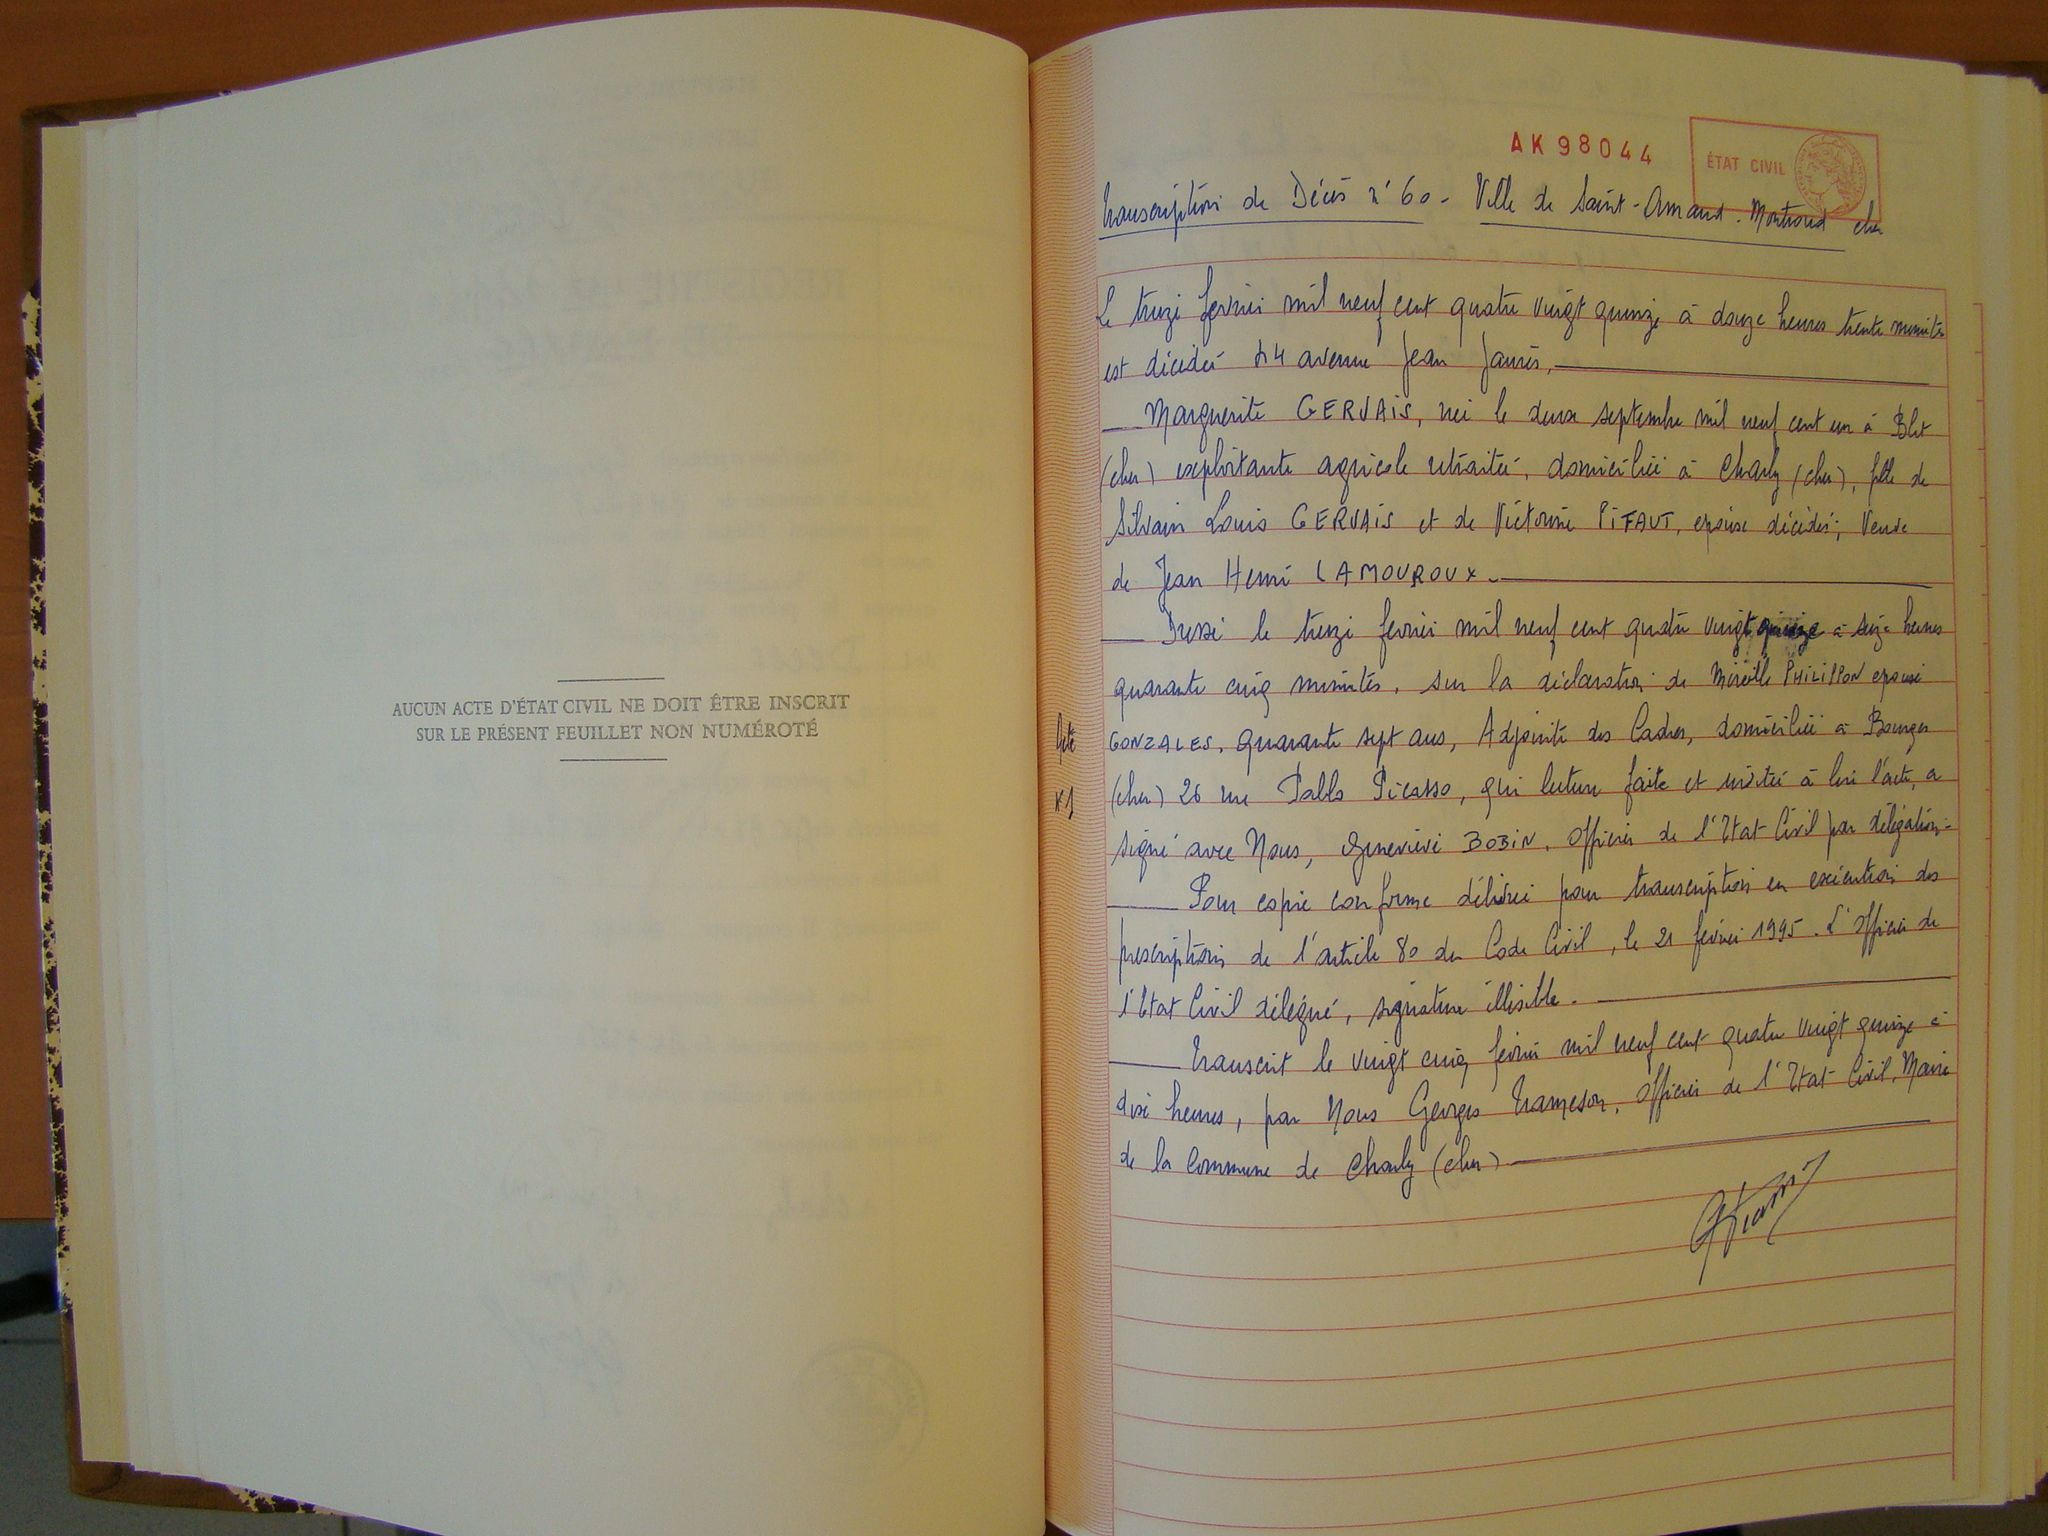 AUCUN ACTE D'ÉTAT CIVIL NE DOIT ÊTRE INSCRIT
SUR LE PRÉSENT FEUILLET NON NUMÉROTÉ
AK 98044
ÉTAT CIVIL
Transcription de Décès n° 60 - Ville de Saint-Amand-Montrond cher
Le treize février mil neuf cent quatre vingt quinze à douze heures trente minutes
est décédée 44 avenue Jean Jaurès,
Marguerite GERVAIS, née le deux septembre mil neuf cent un à Blet
(cher) exploitante agricole retraitée, domiciliée à Charly (cher), fille de
Silvain Louis GERVAIS et de Victorine PIFAUT, époux décédés; Veuve
de Jean Henri LAMOUROUX.
Dressé le treize février mil neuf cent quatre vingt quinze à seize heures
quarante cinq minutes, sur la déclaration de Mireille PHILIPPON épouse
GONZALES, quarante sept ans, Adjointe des Cadres, domiciliée à Bourges
(cher) 26 rue Pablo Picasso, qui lecture faite et invitée à lire l'acte, a
signé avec Nous, Geneviève BOBIN, Officier de l'Etat Civil par délégation.
Pour copie conforme délivrée pour transcription en exécution des
prescriptions de l'article 80 du Code Civil, le 21 février 1995. L'Officier de
l'Etat Civil délégué, signature illisible.
Transcrit le vingt cinq février mil neuf cent quatre vingt quinze à
dix heures, par Nous Georges Trameson, Officier de l'Etat Civil, Maire
de la Commune de Charly (cher)